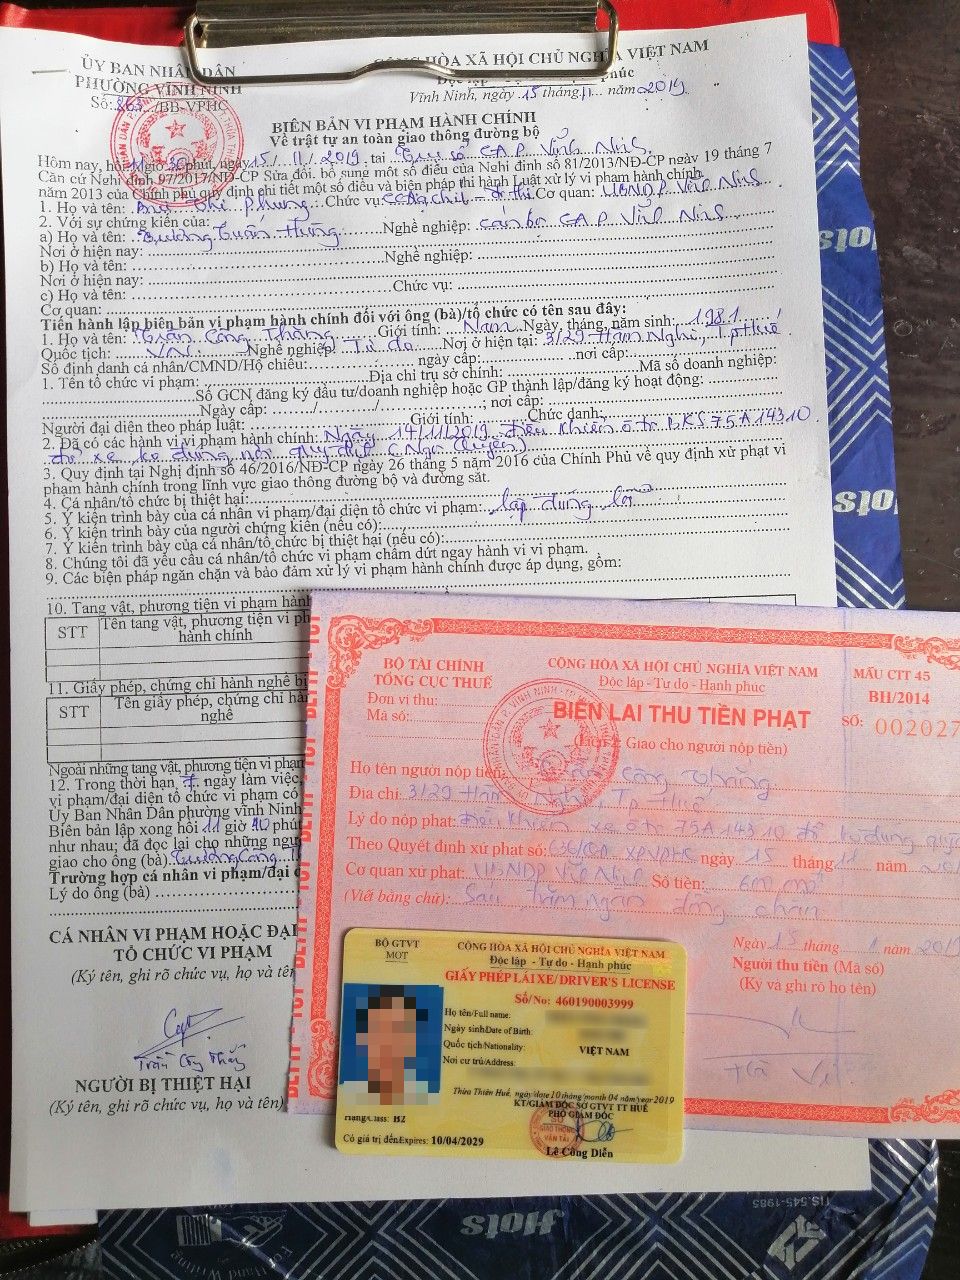 ỦY BAN NHÂN DÂN
PHƯỜNG VĨNH NINH
Số: 863 /BB-VPHC
CỘNG HÒA XÃ HỘI CHỦ NGHĨA VIỆT NAM
Độc lập - Tự do - Hạnh phúc
Vĩnh Ninh, ngày 15 tháng 11 năm 2019
BIÊN BẢN VI PHẠM HÀNH CHÍNH
Về trật tự an toàn giao thông đường bộ
Hôm nay, hồi 11 giờ 30 phút, ngày 15 / 11 / 2019 tại Trụ sở CA P. Vĩnh Ninh
Căn cứ Nghị định 97/2017/NĐ-CP Sửa đổi, bổ sung một số điều của Nghị định số 81/2013/NĐ-CP ngày 19 tháng 7
năm 2013 của Chính phủ quy định chi tiết một số điều và biện pháp thi hành Luật xử lý vi phạm hành chính
1. Họ và tên: Phụng Chức vụ: Cơ quan: UBNDP Vĩnh Ninh
2. Với sự chứng kiến của:
a) Họ và tên: Trương Tuấn Hùng Nghề nghiệp: cán bộ CA P. Vĩnh Ninh
Nơi ở hiện nay:
b) Họ và tên: Nghề nghiệp:
Nơi ở hiện nay:
c) Họ và tên: Chức vụ:
Cơ quan:
Tiến hành lập biên bản vi phạm hành chính đối với ông (bà)/tổ chức có tên sau đây:
1. Họ và tên: Trần Công Thắng Giới tính: Nam Ngày, tháng, năm sinh: 1981
Quốc tịch: VN Nghề nghiệp: Tự do Nơi ở hiện tại: 3/29 Hàm Nghi, TP Huế
Số định danh cá nhân/CMND/Hộ chiếu: ngày cấp: nơi cấp:
1. Tên tổ chức vi phạm: Địa chỉ trụ sở chính: Mã số doanh nghiệp:
Số GCN đăng ký đầu tư/doanh nghiệp hoặc GP thành lập/đăng ký hoạt động:
Ngày cấp: / / ; nơi cấp:
Người đại diện theo pháp luật: Giới tính: Chức danh:
2. Đã có các hành vi vi phạm hành chính: Ngày 14/11/2019 điều khiển ô tô BKS 75A 14310
đỗ xe ko đúng nơi quy định
3. Quy định tại Nghị định số 46/2016/NĐ-CP ngày 26 tháng 5 năm 2016 của Chính Phủ về quy định xử phạt vi
phạm hành chính trong lĩnh vực giao thông đường bộ và đường sắt.
4. Cá nhân/tổ chức bị thiệt hại:
5. Ý kiến trình bày của cá nhân vi phạm/đại diện tổ chức vi phạm: lập đúng lỗi
6. Ý kiến trình bày của người chứng kiến (nếu có):
7. Ý kiến trình bày của cá nhân/tổ chức bị thiệt hại (nếu có):
8. Chúng tôi đã yêu cầu cá nhân/tổ chức vi phạm chấm dứt ngay hành vi vi phạm.
9. Các biện pháp ngăn chặn và bảo đảm xử lý vi phạm hành chính được áp dụng, gồm:
10. Tang vật, phương tiện vi phạm hành
STT Tên tang vật, phương tiện vi ph
hành chính
11. Giấy phép, chứng chỉ hành nghề bị
STT Tên giấy phép, chứng chỉ hàn
nghề
Ngoài những tang vật, phương tiện vi phạm
12. Trong thời hạn 7 ngày làm việc,
vi phạm/đại diện tổ chức vi phạm có
Ủy Ban Nhân Dân phường Vĩnh Ninh
Biên bản lập xong hồi 11 giờ 40 phút
như nhau; đã đọc lại cho những ngư
giao cho ông (bà)
Trường hợp cá nhân vi phạm/đại d
Lý do ông (bà)
CÁ NHÂN VI PHẠM HOẶC ĐẠI
TỔ CHỨC VI PHẠM
(Ký tên, ghi rõ chức vụ, họ và tên
Trần Công Thắng
NGƯỜI BỊ THIỆT HẠI
(Ký tên, ghi rõ chức vụ, họ và tên)
BỘ TÀI CHÍNH
TỔNG CỤC THUẾ
Đơn vị thu:
Mã số:
CỘNG HÒA XÃ HỘI CHỦ NGHĨA VIỆT NAM
Độc lập - Tự do - Hạnh phúc
MẪU CTT 45
BH/2014
BIÊN LAI THU TIỀN PHẠT
SỐ: 002027
(Liên 2: Giao cho người nộp tiền)
Họ tên người nộp tiền: Trần Công Thắng
Địa chỉ: 3/29 Hàm Nghi, Tp Huế
Lý do nộp phạt: Điều khiển xe ô tô 75A 14310 đỗ ko đúng quy
Theo Quyết định xử phạt số: 636/QĐ XPVPHC ngày 15 tháng 11 năm 2019
Cơ quan xử phạt: UBNDP Vĩnh Ninh Số tiền: 600
(Viết bằng chữ): Sáu trăm ngàn đồng chẵn
Ngày 15 tháng năm 2019
Người thu tiền (Mã số)
(Ký và ghi rõ họ tên)
BỘ GTVT
MOT
CỘNG HÒA XÃ HỘI CHỦ NGHĨA VIỆT NAM
Độc lập - Tự do - Hạnh phúc
GIẤY PHÉP LÁI XE/DRIVER'S LICENSE
Số/No: 460190003999
Họ tên/Full name:
Ngày sinh/Date of Birth:
Quốc tịch/Nationality: VIỆT NAM
Nơi cư trú/Address:
Thừa Thiên Huế, ngày/date 10 tháng/month 04 năm/year 2019
KT/GIÁM ĐỐC SỞ GTVT TT HUẾ
PHÓ GIÁM ĐỐC
Hạng/Class: B2
Có giá trị đến/Expires: 10/04/2029
Lê Công Diễn
Hots
Hots
Hots
TIS.545-1985